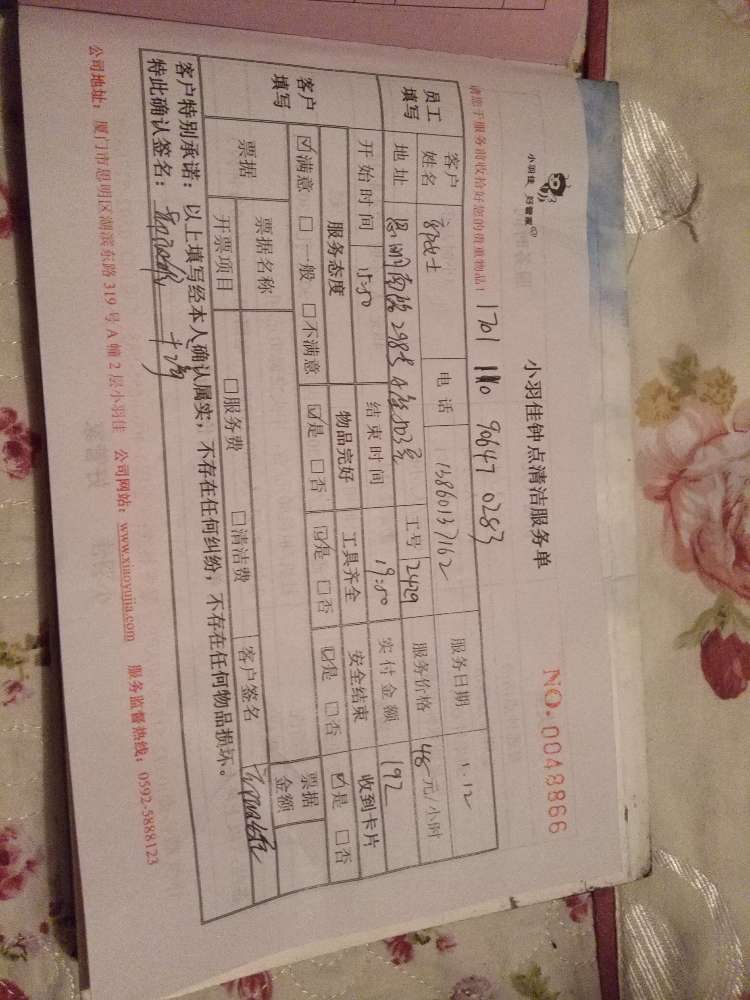 小羽佳 好管家
小羽佳钟点清洁服务单
NO. 0048866
请您于服务前收拾好您的贵重物品！ 1701 1110 90647 0283
员工填写 客户姓名 女士 电话 13860137162 服务日期 1.12
地址 思明南路298号 503室 工号 2429 服务价格 48 元/小时
开始时间 15:50 结束时间 19:50 实付金额 192
客户填写 服务态度 物品完好 工具齐全 安全结束 收到卡片
☑满意 □一般 □不满意 ☑是 □否 ☑是 □否 ☑是 □否 ☑是 □否
票据 票据名称 票据金额
开票项目 □服务费 □清洁费 客户签名
客户特别承诺：以上填写经本人确认属实，不存在任何纠纷，不存在任何物品损坏。
特此确认签名：
公司地址：厦门市思明区湖滨东路 319 号 A 幢 2 层小羽佳 公司网站：www.xiaoyujia.com 服务监督热线：0592-5888123